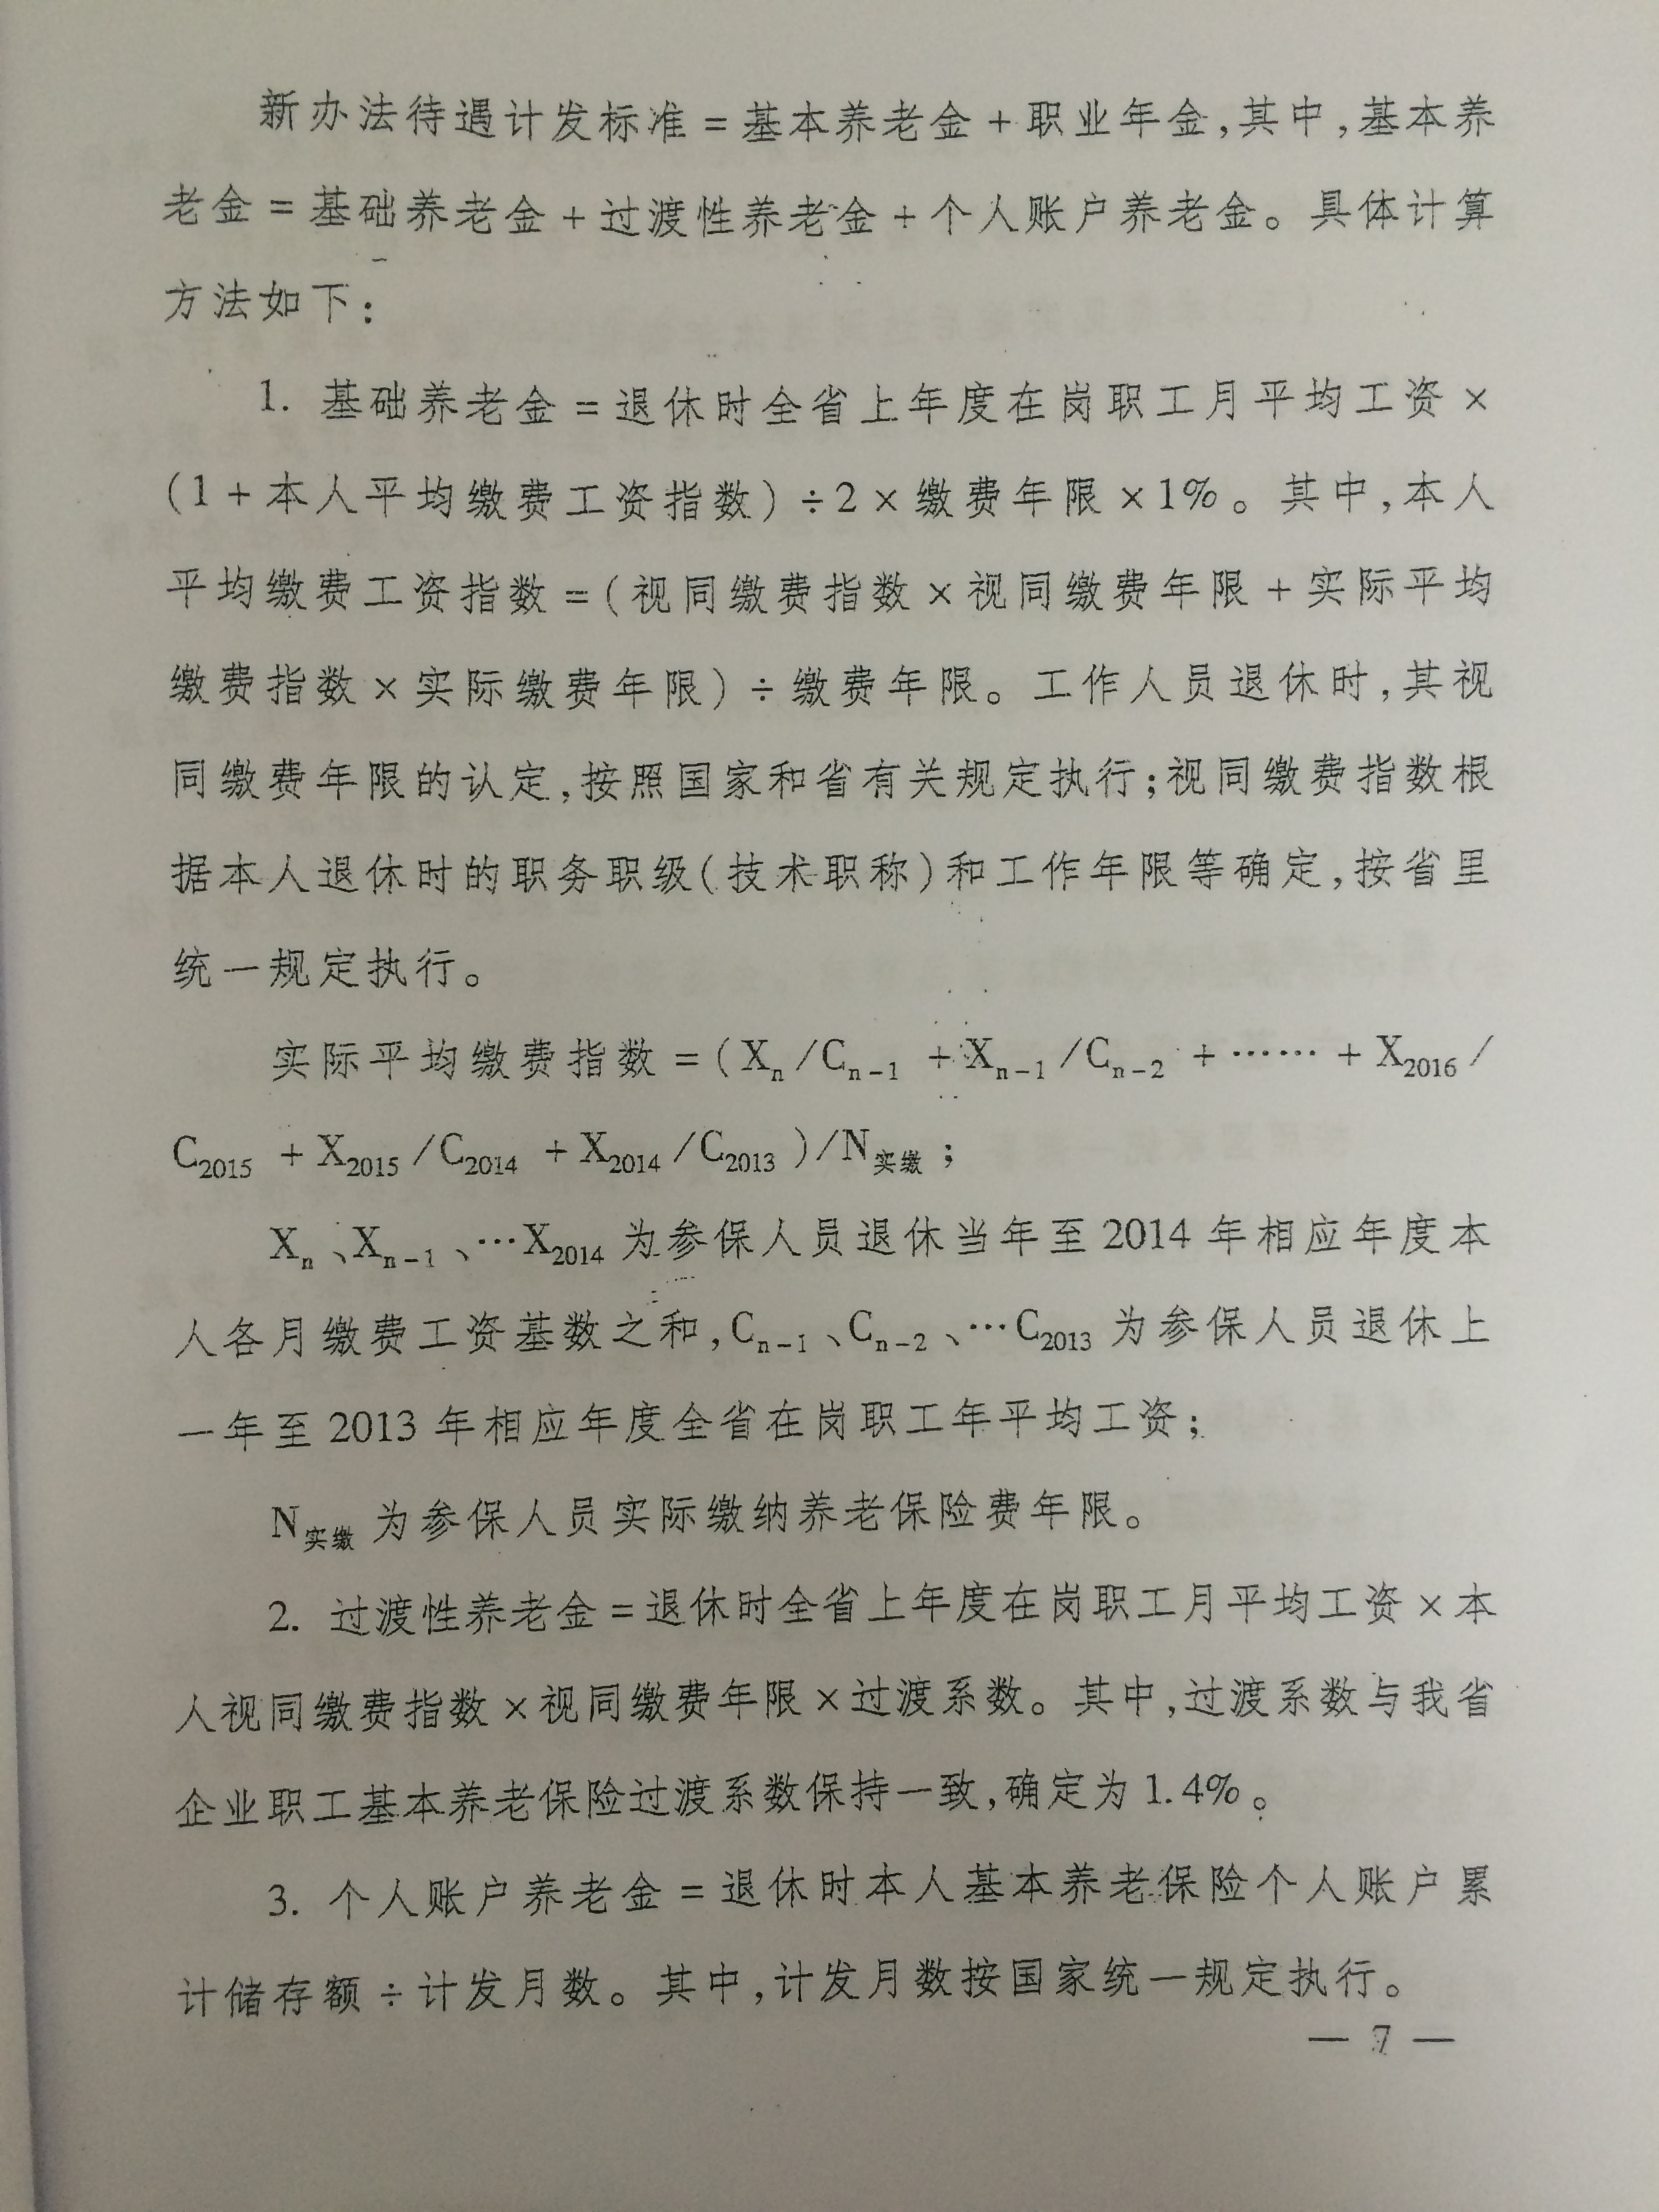 新办法待遇计发标准=基本养老金+职业年金,其中,基本养
老金=基础养老金+过渡性养老金+个人账户养老金。具体计算
方法如下:
1. 基础养老金=退休时全省上年度在岗职工月平均工资×
(1+本人平均缴费工资指数)÷2×缴费年限×1%。其中,本人
平均缴费工资指数=(视同缴费指数×视同缴费年限+实际平均
缴费指数×实际缴费年限)÷缴费年限。工作人员退休时,其视
同缴费年限的认定,按照国家和省有关规定执行;视同缴费指数根
据本人退休时的职务职级(技术职称)和工作年限等确定,按省里
统一规定执行。
实际平均缴费指数=(Xn/Cn-1+Xn-1/Cn-2+……+X2016/
C2015+X2015/C2014+X2014/C2013)/N实缴;
Xn、Xn-1、…X2014为参保人员退休当年至2014年相应年度本
人各月缴费工资基数之和,Cn-1、Cn-2、…C2013为参保人员退休上
一年至2013年相应年度全省在岗职工年平均工资;
N实缴为参保人员实际缴纳养老保险费年限。
2. 过渡性养老金=退休时全省上年度在岗职工月平均工资×本
人视同缴费指数×视同缴费年限×过渡系数。其中,过渡系数与我省
企业职工基本养老保险过渡系数保持一致,确定为1.4%。
3. 个人账户养老金=退休时本人基本养老保险个人账户累
计储存额÷计发月数。其中,计发月数按国家统一规定执行。
— 7 —